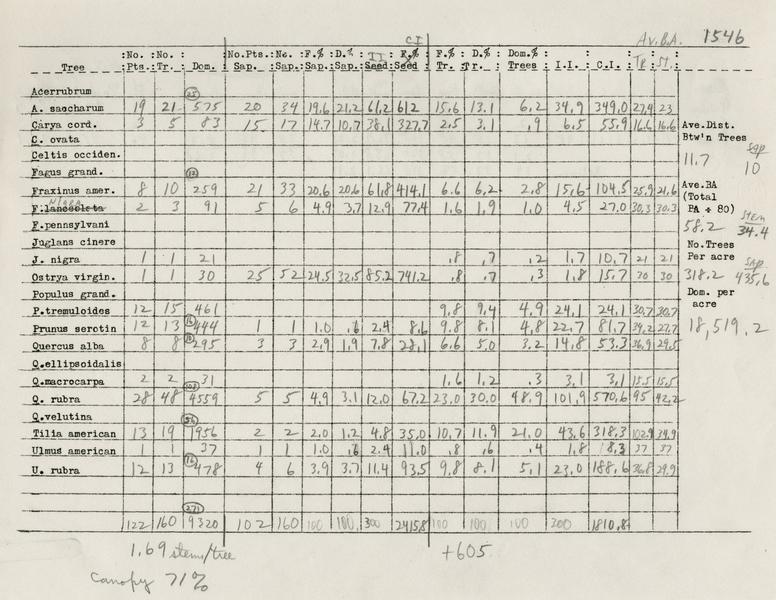 Av.B.A. 1546
CI
:No. :No. : :No.Pts.:No. :F.% :D.% : II :F.% : F.% : D.% : Dom.% : : : Tr. : St.
Tree :Pts.:Tr. : Dom. : Sap. :Sap.:Sap.:Sap.:Seed:Seed : Tr. :Tr. : Trees : I.I. : C.I.
Acerrubrum (25)
A. saccharum 19 21 575 20 34 19,6 21,2 61,2 612 15,6 13.1 6,2 34,9 349,0 27,4 23
Carya cord. 3 5 83 15 17 14.7 10,7 38,1 327,7 2,5 3,1 ,9 6,5 55,9 16,6 16,6
Ave.Dist. Btw'n Trees
C. ovata
sap
Celtis occiden.
11,7 10
Fagus grand. (12)
Fraxinus amer. 8 10 259 21 33 20,6 20,6 61,8 414,1 6.6 6,2 2,8 15,6 104,5 25,9 21,6
Ave.BA (Total BA ÷ 80)
nigra
F.lanceolata 2 3 91 5 6 4,9 3,7 12,9 77,4 1,6 1,9 1.0 4,5 27,0 30,3 30,3
F.pennsylvani
58.2 stem 34.4
Juglans cinere
No.Trees Per acre
J. nigra 1 1 21 ,8 ,7 ,2 1,7 10,7 21 21
sap
Ostrya virgin. 1 1 30 25 52 24,5 32,5 85,2 741,2 ,8 ,7 ,3 1,8 15,7 30 30
318.2 435,6
Populus grand.
Dom. per acre
P.tremuloides 12 15 461 9,8 9,4 4,9 24,1 24,1 30,7 30,7
Prunus serotin 12 13 (16) 444 1 1 1,0 ,6 2,4 8,6 9,8 8,1 4,8 22,7 81,7 34,2 27,7
18,519.2
Quercus alba 8 8 (10) 295 3 3 2,9 1,9 7,8 28,1 6.6 5.0 3.2 14,8 53.3 36,9 29,5
Q.ellipscidalis
Q.macrocarpa 2 2 31 1.6 1,2 .3 3,1 3,1 15,5 15,5
(108)
Q. rubra 28 48 4559 5 5 4,9 3,1 12,0 67,2 23,0 30,0 48,9 101,9 570,6 95 42,2
Q.velutina
(56)
Tilia american 13 19 1956 2 2 2,0 1,2 4,8 35,0 10,7 11,9 21,0 43,6 318,3 102,9 34,9
Ulmus american 1 1 37 1 1 1,0 ,6 2.4 11.0 ,8 .6 .4 1,8 8,3 37 37
(16)
U. rubra 12 13 478 4 6 3,9 3,7 11,4 93,5 9,8 8,1 5,1 23,0 188,6 36,8 29,9
(271)
122 160 9320 102 160 100 100, 300 2415,8 100 100. 100 300 1810,8
1,69 stems/tree +605
Canopy 71%